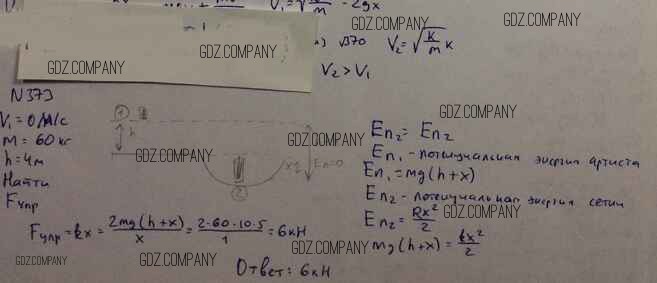 V₁ = √ k/m - 2gx
√370 V₂ = √ k/m x
GDZ.COMPANY
GDZ.COMPANY
GDZ.COMPANY
GDZ.COMPANY
V₂ > V₁
N373
V₁ = 0 м/с
m = 60 кг
h = 4 м
Найти
Fупр
① h
GDZ.COMPANY
GDZ.COMPANY
x
Eп=0
②
GDZ.COMPANY
Eп₂ = Eп₂
Eп₁ - потенциальная энергия артиста
GDZ.COMPANY
Eп₁ = mg(h+x)
Eп₂ - потенциальная энергия сетки
Eп₂ = kx²/2
GDZ.COMPANY
mg(h+x) = kx²/2
Fупр = kx = 2mg(h+x)/x = 2·60·10·5/1 = 6кН
GDZ.COMPANY
GDZ.COMPANY
GDZ.COMPANY
GDZ.COMPANY
Ответ: 6кН